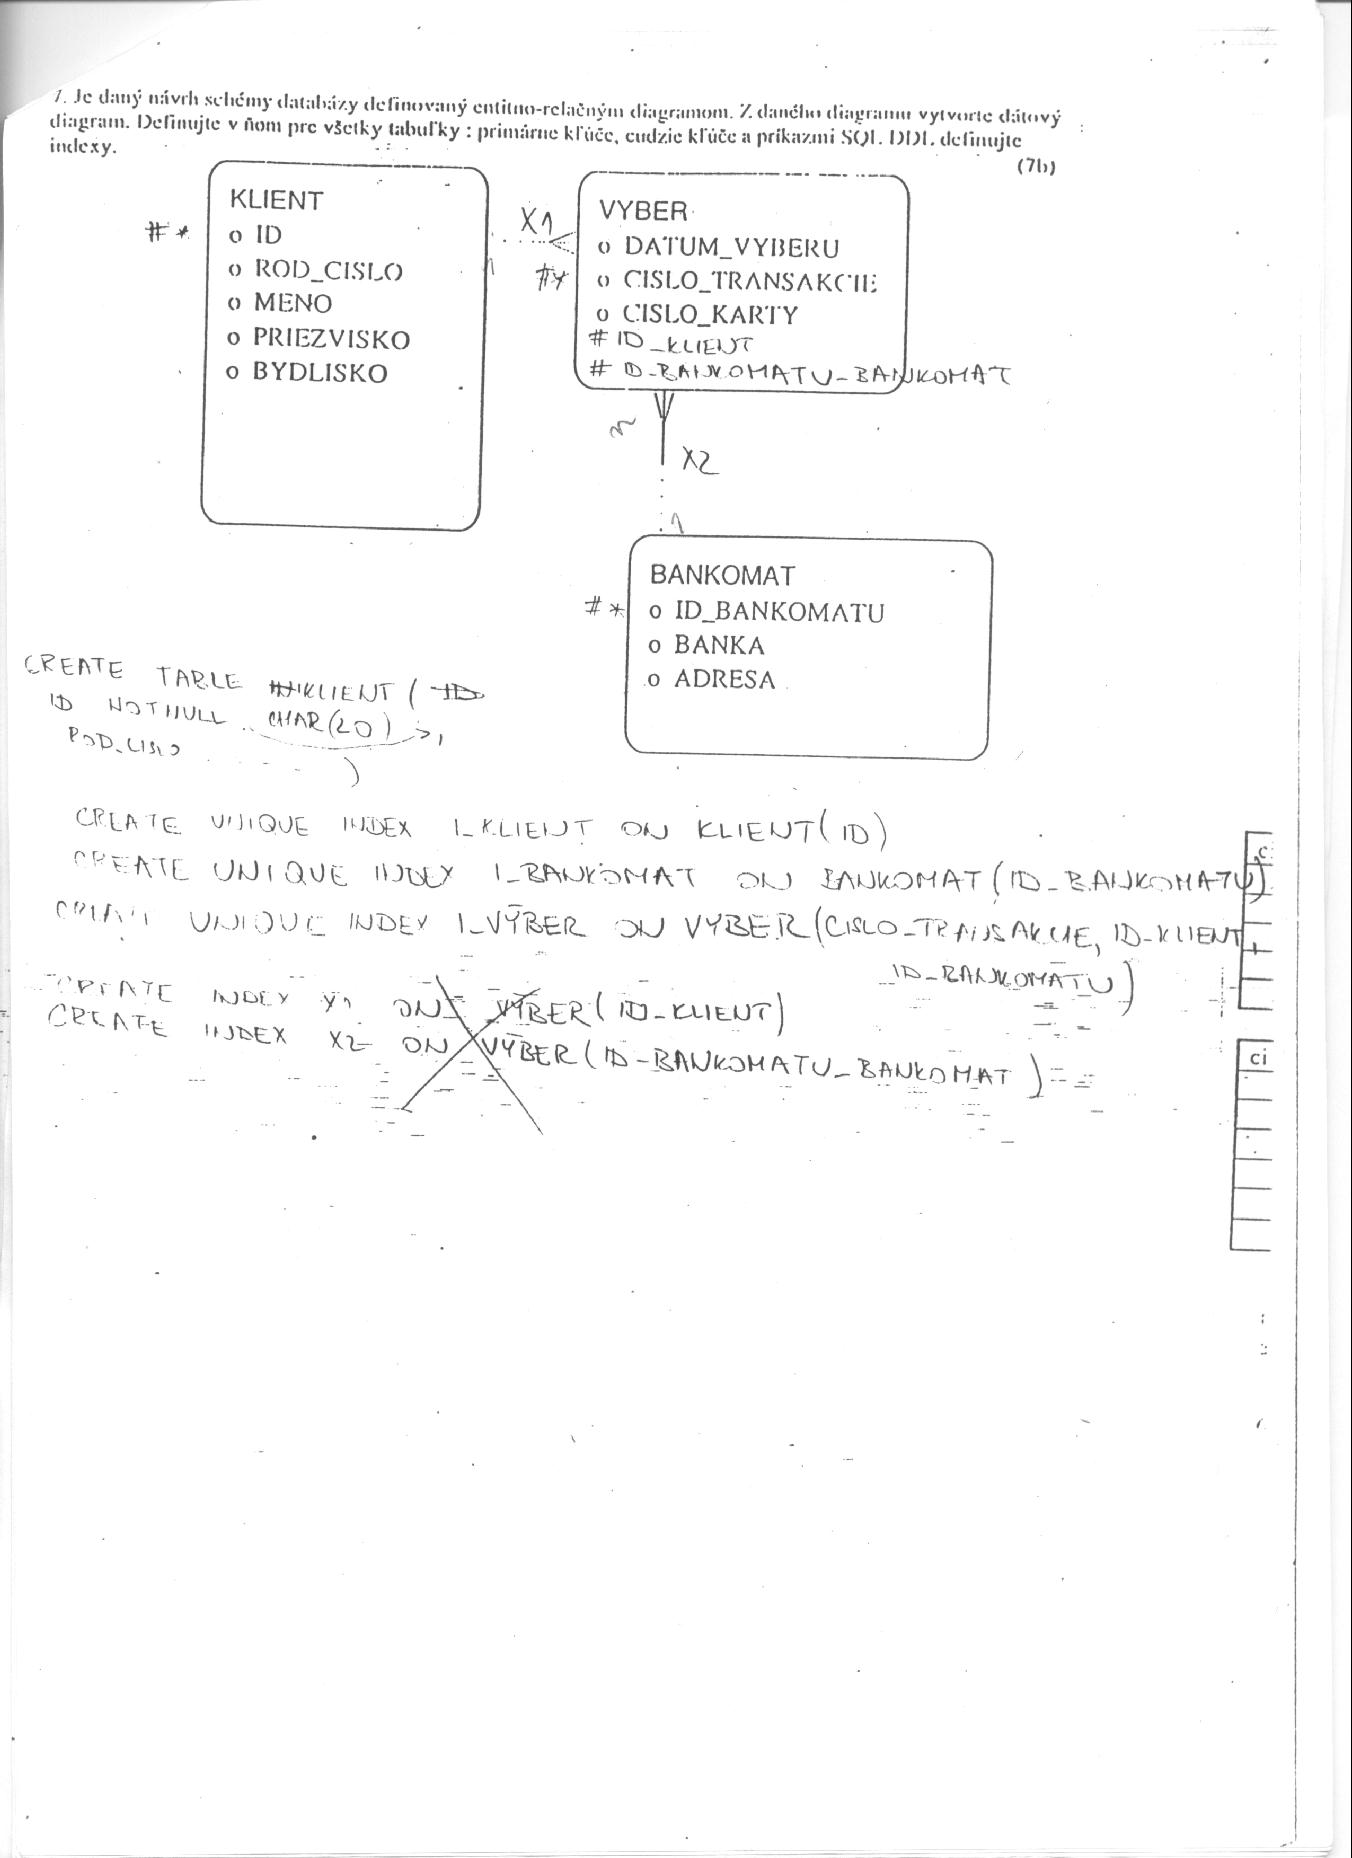 7. Je daný návrh schémy databázy definovaný entitno-relačným diagramom. Z daného diagramu vytvorte dátový
diagram. Definujte v ňom pre všetky tabuľky : primárne kľúče, cudzie kľúče a príkazmi SQL DDL definujte
indexy.
(7b)
KLIENT
# * o ID
o ROD_CISLO
o MENO
o PRIEZVISKO
o BYDLISKO
X1
1
VYBER
o DATUM_VYBERU
#* o CISLO_TRANSAKCIE
o CISLO_KARTY
# ID_KLIENT
# ID_BANKOMATU_BANKOMAT
X2
1
BANKOMAT
# * o ID_BANKOMATU
o BANKA
o ADRESA
CREATE TABLE KLIENT ( ID
ID NOTNULL CHAR(20) ,
ROD_CISLO
)
CREATE UNIQUE INDEX I_KLIENT ON KLIENT(ID)
CREATE UNIQUE INDEX I_BANKOMAT ON BANKOMAT(ID_BANKOMATU)
CREATE UNIQUE INDEX I_VÝBER ON VYBER(CISLO_TRANSAKCIE, ID_KLIENT,
ID_BANKOMATU)
CREATE INDEX X1 ON VÝBER(ID_KLIENT)
CREATE INDEX X2 ON VÝBER(ID_BANKOMATU_BANKOMAT)
c
ci